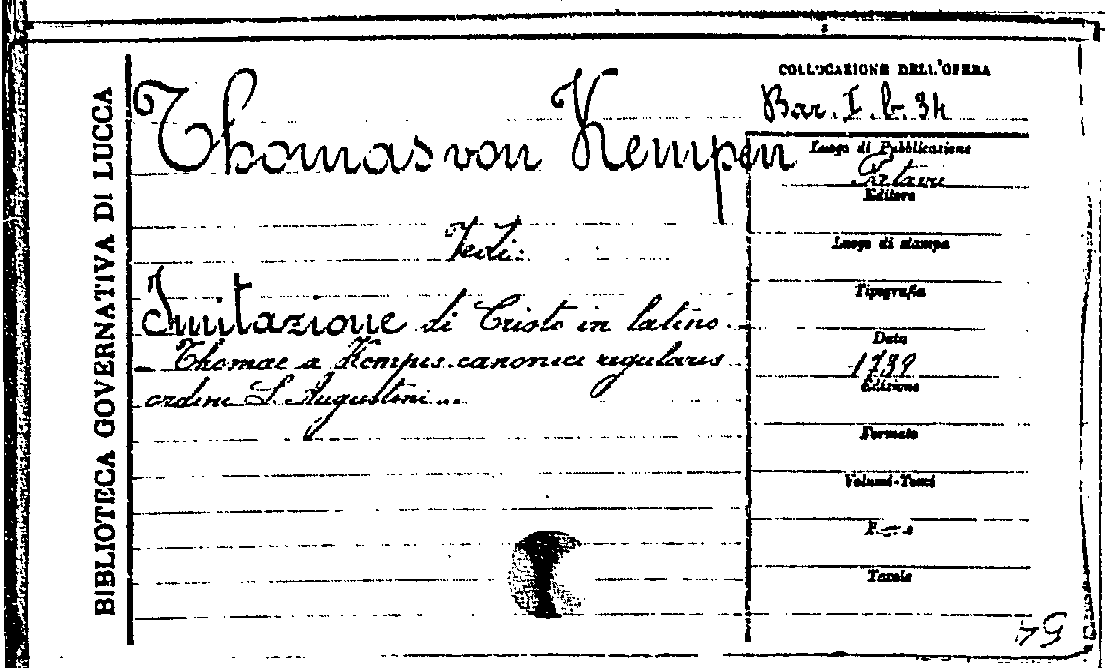 BIBLIOTECA GOVERNATIVA DI LUCCA
COLLOCAZIONE DELL'OPERA
Bar. I. b. 34
Thomas von Kempen
Vedi:
Imitazione di Cristo in latino.
Thomae a Kempis canonici regularis
ordini S. Augustini...
Luogo di Pubblicazione
Editore
Luogo di stampa
Tipografia
Data
1739
Edizione
Formato
Volumi-Tomi
Tavole